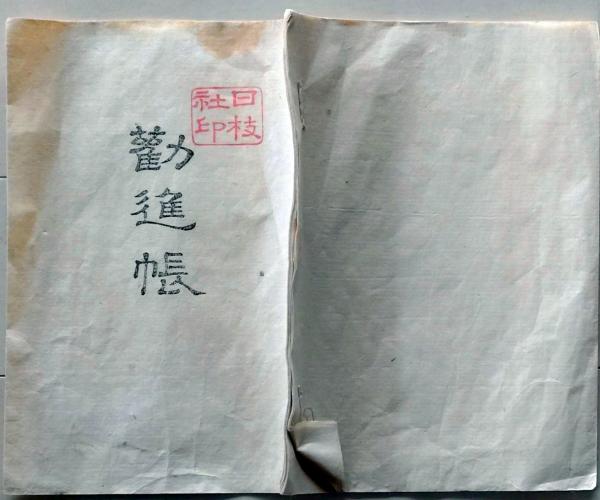 日枝
社印
勸進帳